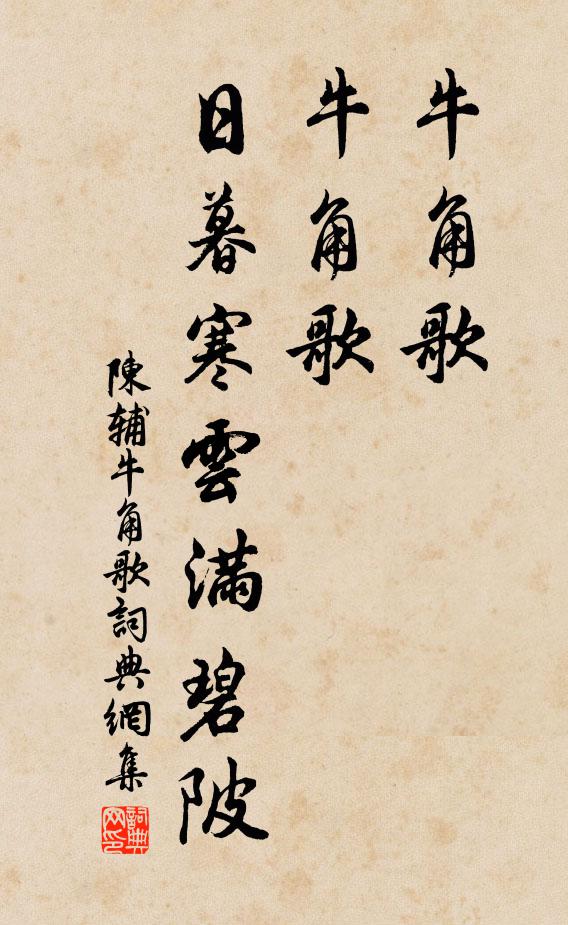 牛角歌
牛角歌
日暮寒雲滿碧陂
陳輔牛角歌詞典網集
詞典网印